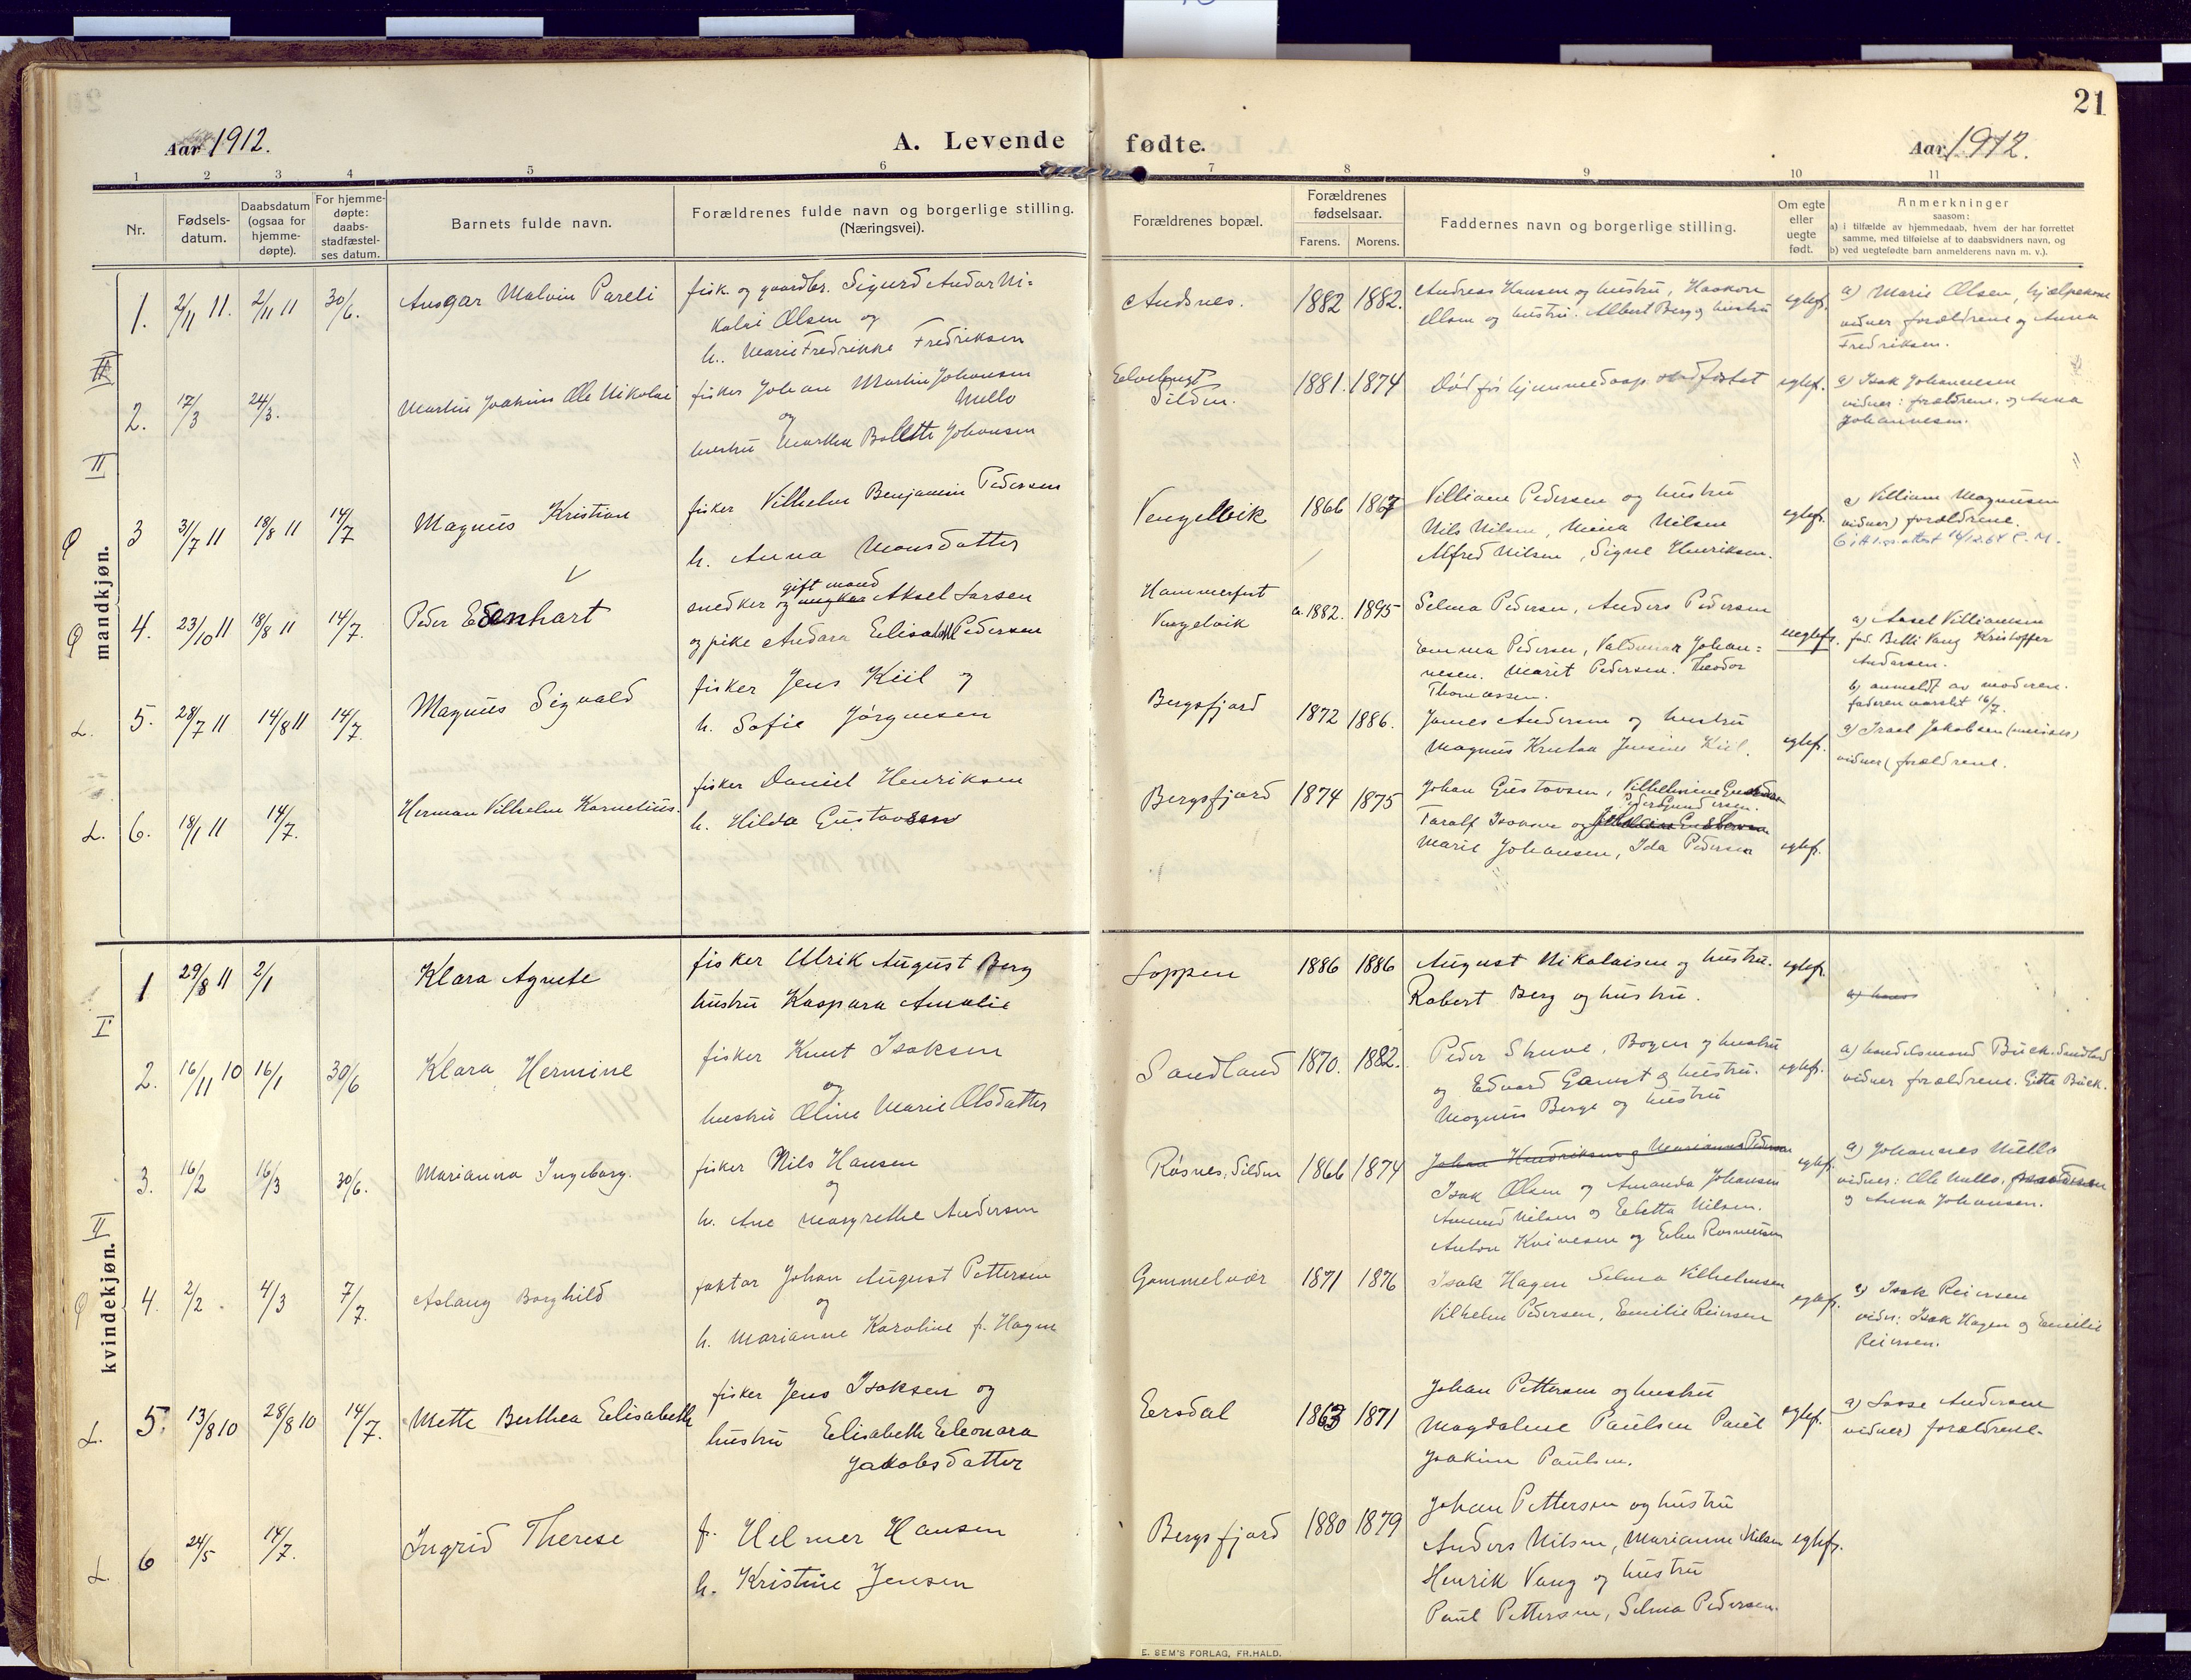 21
Aar 1912.
A. Levende fødte.
Aar 1912.
1 2 3 4 5 6 7 8 9 10 11
Nr.
Fødsels-
datum.
Daabsdatum
(ogsaa for
hjemme-
døpte).
For hjemme-
døpte:
daabs-
stadfæstel-
ses datum.
Barnets fulde navn.
Forældrenes fulde navn og borgerlige stilling.
(Næringsvei).
Forældrenes bopæl.
Forældrenes
fødselsaar.
Farens. Morens.
Faddernes navn og borgerlige stilling.
Om egte
eller
uegte
født.
Anmerkninger
saasom:
a) i tilfælde av hjemmedaab, hvem der har forrettet
samme, med tilføielse af to daabsvidners navn, og
b) ved uegtefødte barn anmelderens navn m. v.).
mandkjøn.
1. 2/11 11. 2/11 11 30/6. Ansgar Malvin Pareli
fisk. og gaardbr. Sigurd Andor Ni-
kolai Olsen og
h. Marie Fredrikke Fredriksen
Andsnes. 1882 1882.
Andreas Hansen og hustru, Haakon
Olsen og hustru. Albert Berg og hustru
egtef.
a) Marie Olsen, hjælpekone
vidner forældrene og Anna
Fredriksen.
II
2. 17/3 24/3. Martin Joakim Ole Nikolai
fisker Johan Martin Johansen
Mello
og
hustru Martha Bolette Johansen
Silden. 1881. 1874
Død før hjemmedaap. stadfæstet
egtef.
a) Isak Johannesen
vidner: forældrene, og Anna
Johannesen.
II
3 31/7 11 18/8 11 14/7 Magnus Kristian
fisker Vilhelm Benjamin Pedersen
h. Anna Monsdatter
Vengelvik 1866 1867
Villiam Pedersen og hustru
Nils Nilsen, Meina Nilsen
Alfred Nilsen, Signe Henriksen.
egtef.
a) Villiam Magnusen
vidner) forældrene.
4. 23/10 11 18/8 11 14/7. Peder Edenhart
gift mand
snedker og ungkar Aksel Larsen
og pike Andara Elisabet Pedersen
Hammerfest
Vengelvik
a. 1882. 1895
Selma Pedersen, Anders Pedersen
Emma Pedersen, Valdemar Johan-
nesen. Marit Pedersen. Theodor
Thomassen.
uegtef.
a) Aasel Villiamsen
fad. Betti Vang Kristoffer
Andersen.
b) anmeldt av moderen.
faderen varslet 16/7.
L. 5. 28/7 11 14/8 11 14/7. Magnus Sigvald
fisker Jens Kiil og
h. Sofie Jørgensen
Bergsfjord 1872 1886.
James Andersen og hustru
Magnus Kristian Jensine Kiil.
egtef.
a) Israel Jakobsen
vidner( forældrene.
L. 6. 18/1 11 14/7. Herman Vilhelm Kornelius.
fisker Daniel Henriksen
h. Hilda Gustavsen
Bergsfjord 1874 1875
Johan Gustavsen, Vilhelmine
Peder Gundersen.
Taralf Isaksen og
Marie Johansen, Ida Pedersen
egtef.
kvindekjøn.
1 29/8 11 2/1 Klara Agnete
fisker Ulrik August Berg
hustru Kaspara Amalie
Loppen 1886 1886
August Nikolaisen og hustru.
Robert Berg og hustru.
egtef.
I
2. 16/11 10 16/1 30/6 Klara Hermine
fisker Knut Isaksen
og
hustru Oline Marie Olsdatter
Sandland 1870. 1882.
Peder Skuve, Bogen og hustru
og Edvard Gamst og hustru.
Magnus Berge og hustru
egtef.
a) handelsmand Buck. Sandland
vidner forældrene. Gitta Buck.
3. 16/2 16/3 30/6. Marianna Ingeborg.
fisker Nils Hansen
og
h. Ane Margrethe Andersen
Røsnes, Silden 1866 1874
Johan Hendriksen og Marianna Pedersen
Isak Olsen og Amanda Johansen
Amund Nilsen og Ebetta Nilsen.
Anton Kvivesen og Erlen Rasmussen
egtef.
a) Johannes Mello
vidner: Ole Mello.
og Anna Johansen.
II
4. 2/2. 4/3 7/7. Aslaug Borghild
faktor Johan August Pettersen
og
h. Marianne Karoline f. Hagen
Gammelvær 1871 1876
Isak Hagen Selma Vilhelmsen
Vilhelm Pedersen, Emilie Reiersen
egtef.
a) Isak Reiersen
vidn: Isak Hagen og Emilie
Reiersen.
L. 5. 13/8 10 28/8 10 14/7. Mette Berthea Elisabeth
fisker Jens Isaksen og
hustru Elisabeth Eleonara
Jakobsdatter
Ersdal 1863 1871
Johan Pettersen og hustru
Magdalene Paulsen Paul
Joakim Paulsen.
egtef.
a) Lasse Andersen
vidner) forældrene.
L. 6 24/5 14/7. Ingrid Therese
f. Helmer Hansen
h. Kristine Jensen
Bergsfjord 1880 1879
Johan Petterson og hustru
Anders Nilsen, Marianne Nilsen
Henrik Vang og hustru
Paul Pettersen, Selma Pedersen.
egtef.
E. SEM'S FORLAG, FR.HALD.